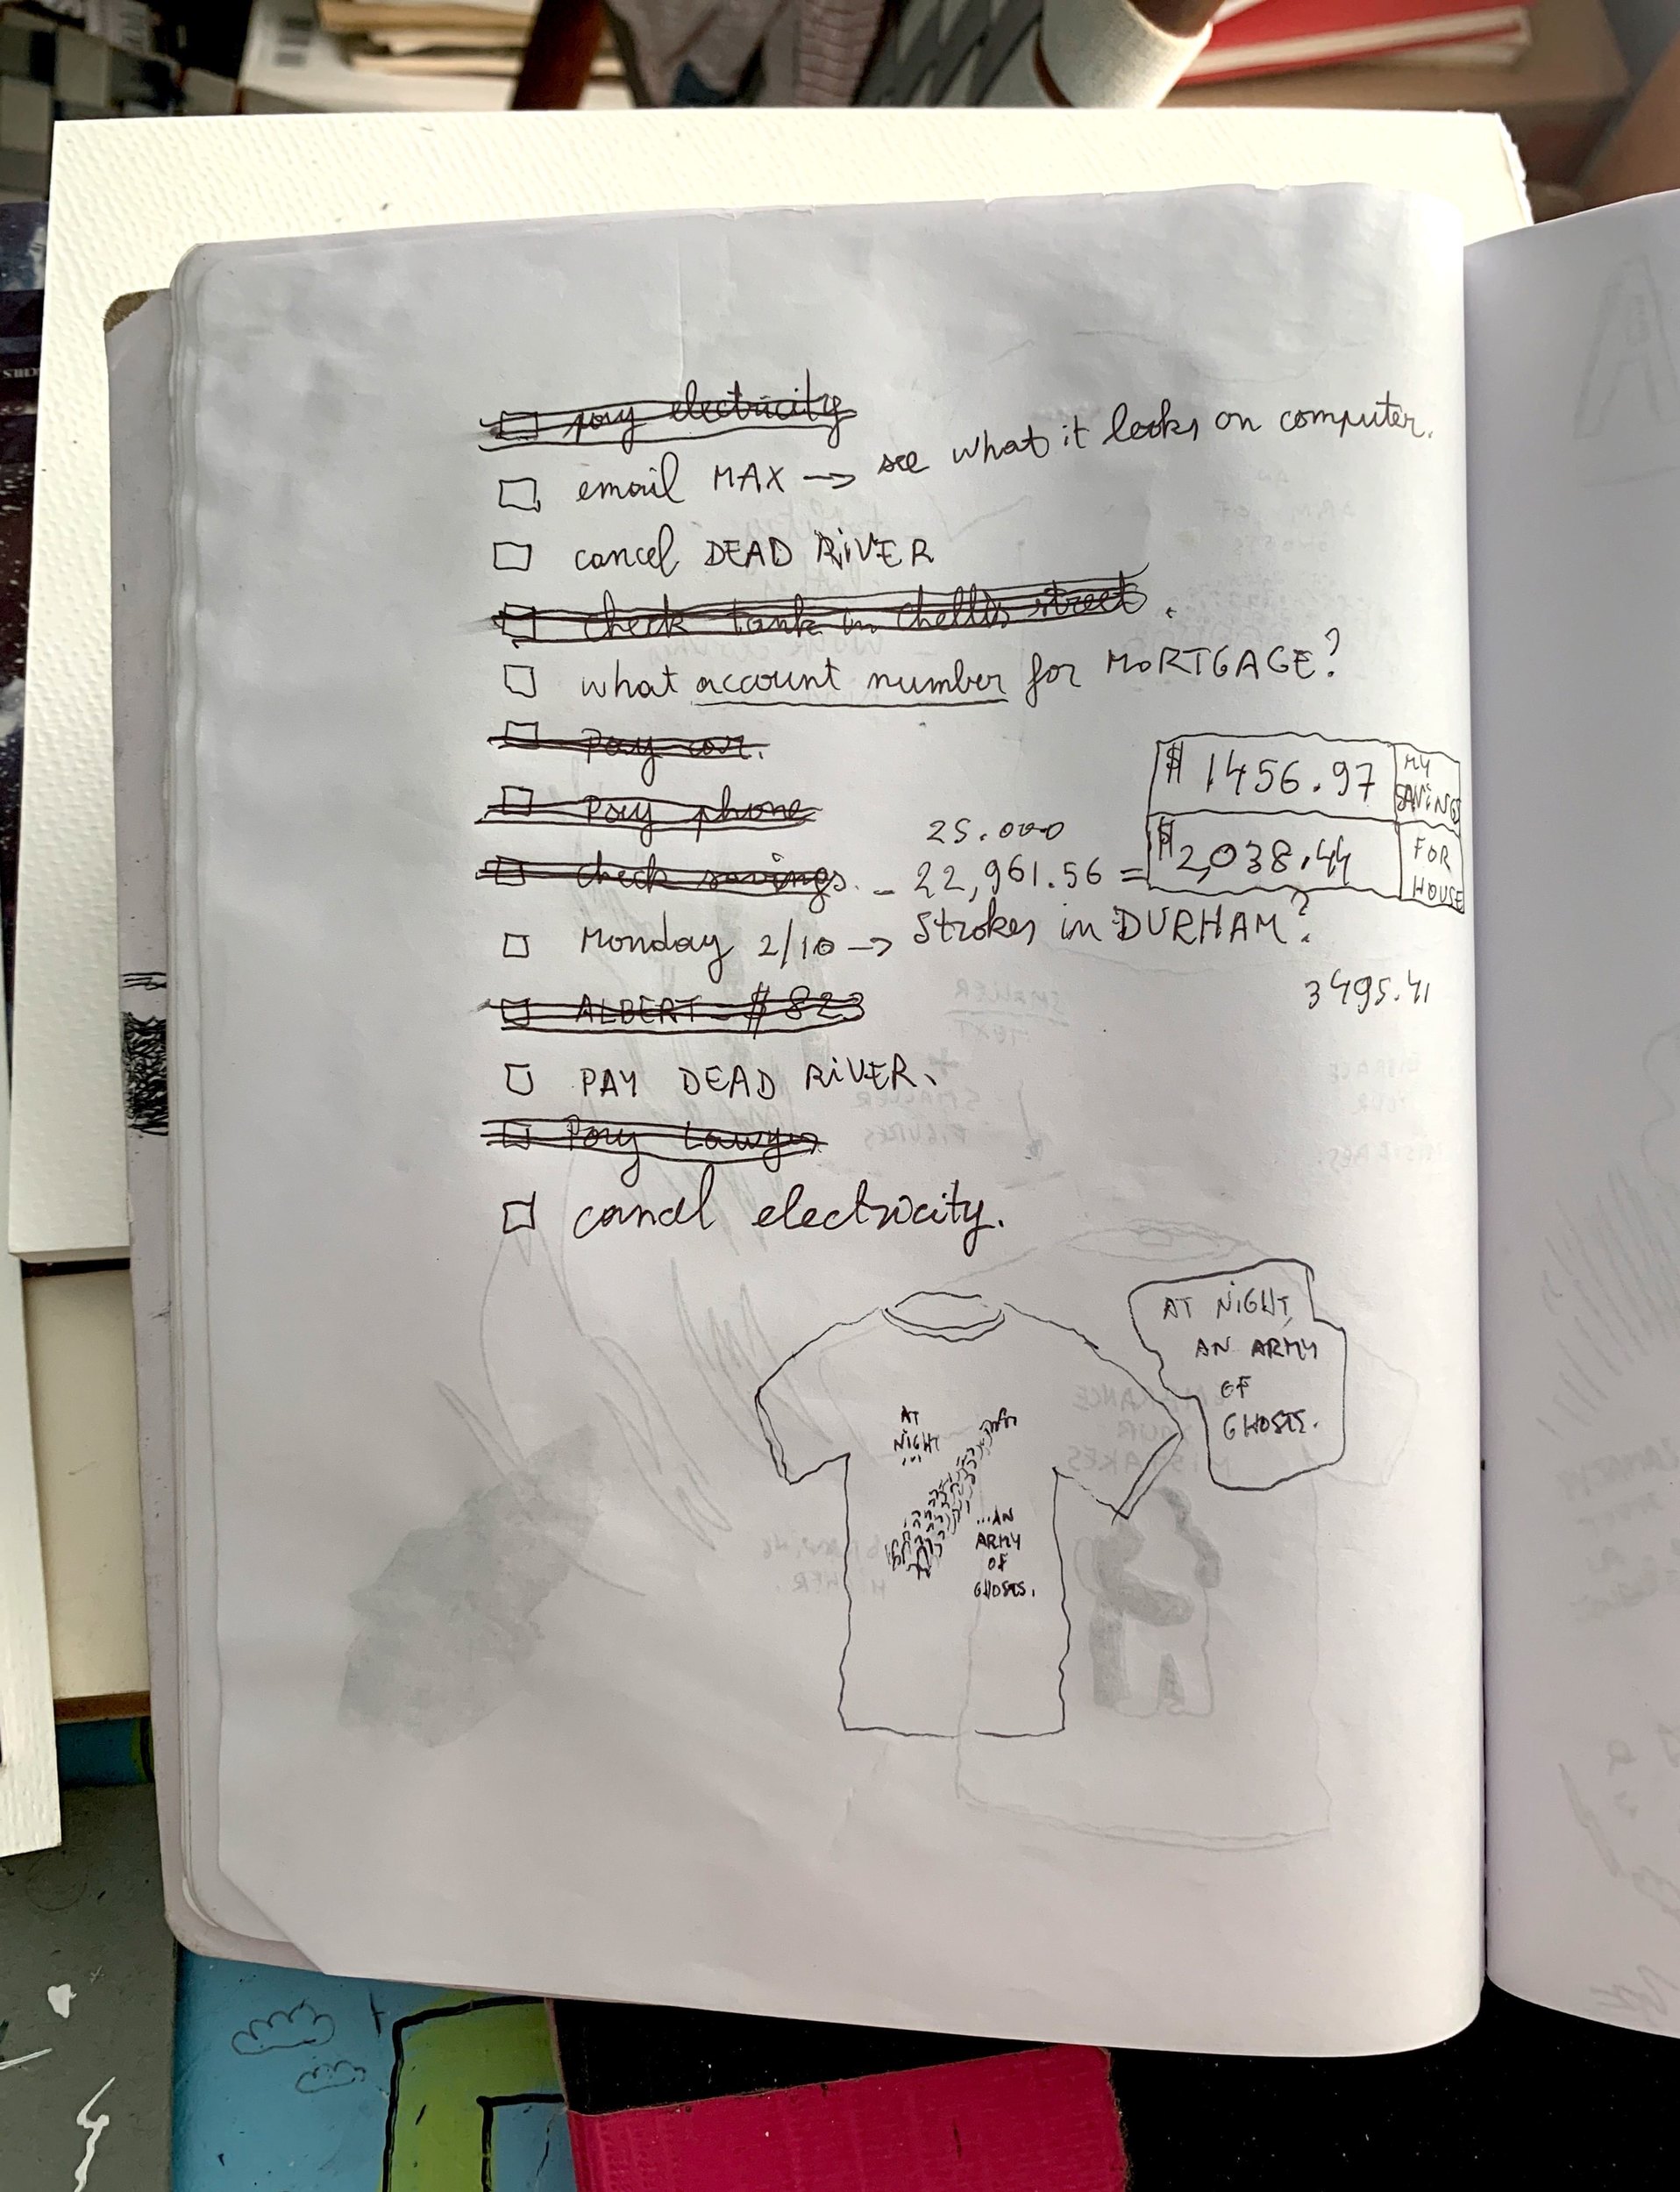 pay electricity
email MAX → see what it looks on computer.
cancel DEAD RiVER
check tank in Chellis street.
what account number for MORTGAGE?
Pay car.
Pay phone
$ 1456.97 MY SAVINGS
25.000
check savings. - 22,961.56 = $2,038.44 FOR HOUSE
Monday 2/10 → Strokes in DURHAM?
3495.41
ALBERT - $ 823
PAY DEAD RiVER.
Pay Lawyer
cancel electricity.
AT NiGHT,
AN ARMY
OF
GHOSTS.
AT
NiGHT
...
...AN
ARMY
OF
GHOSTS.